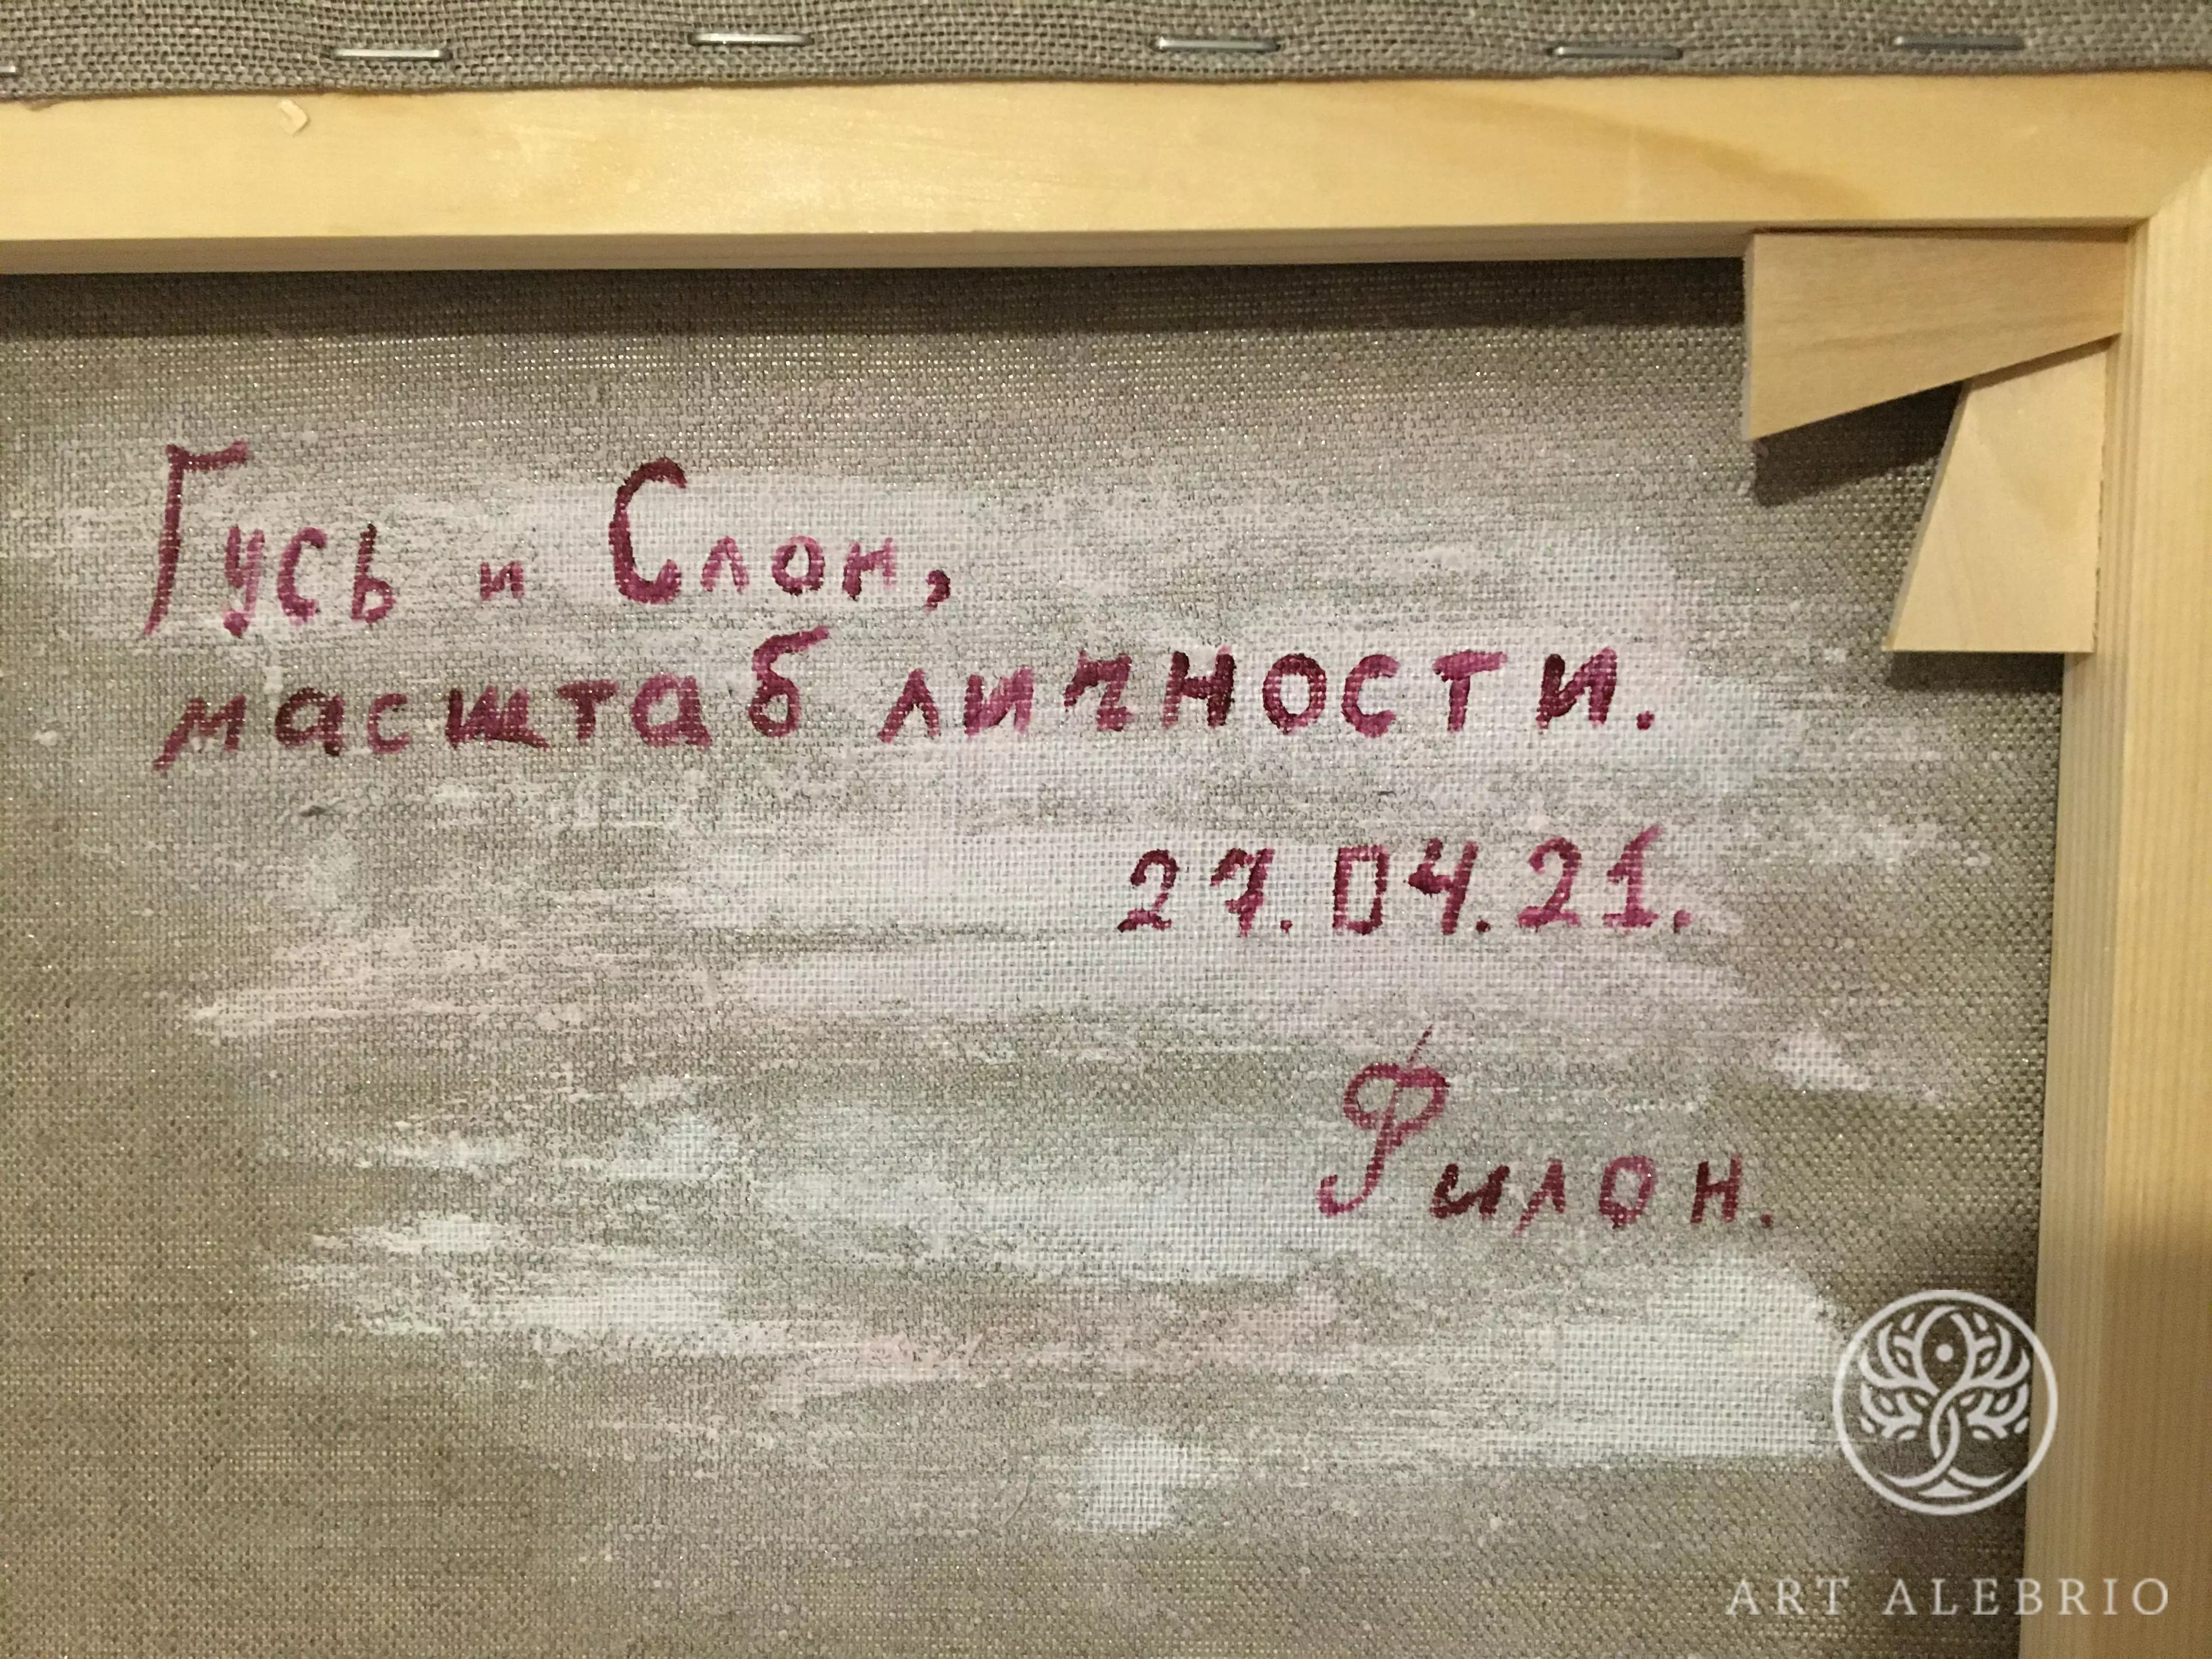 Гусь и Слон,
масштаб личности.
27.04.21.
Филон.
ART ALEBRIO